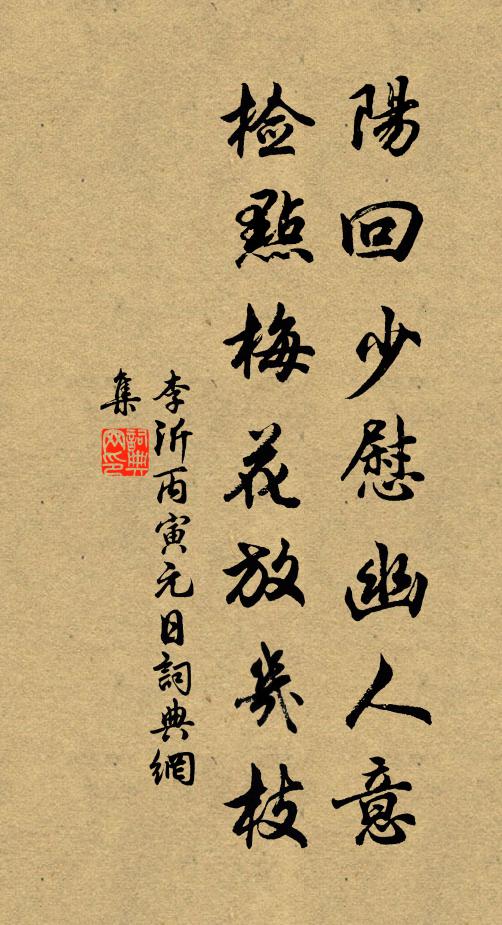 陽回少慰幽人意
檢點梅花放幾枝
李沂丙寅元日詞典網
集
詞典
网印